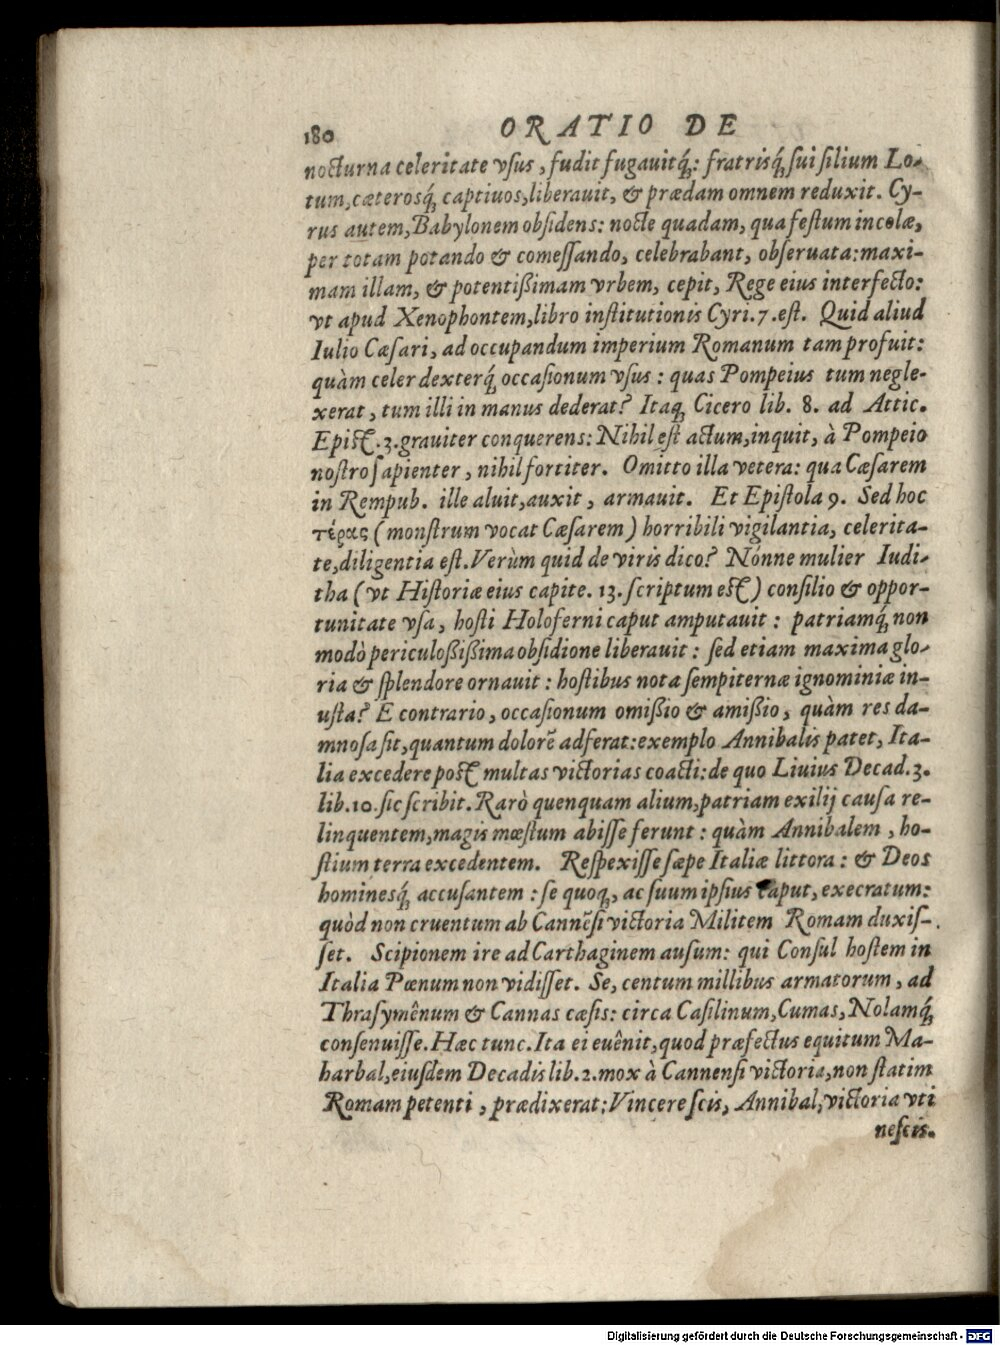 180 ORATIO DE
nocturna celeritate vſus, fudit fugauitq́;: fratrisq́; ſui filium Lo-
tum, cæterosq́; captiuos, liberauit, & prædam omnem reduxit. Cy-
rus autem, Babylonem obſidens: nocte quadam, qua feſtum incolæ,
per totam potando & comeſſando, celebrabant, obſeruata: maxi-
mam illam, & potentißimam vrbem, cepit, Rege eius interfecto:
vt apud Xenophontem, libro inſtitutionis Cyri. 7. eſt. Quid aliud
Iulio Cæſari, ad occupandum imperium Romanum tam profuit:
quàm celer dexterq́; occaſionum vſus: quas Pompeius tum negle-
xerat, tum illi in manus dederat? Itaq; Cicero lib. 8. ad Attic.
Epiſt. 3. grauiter conquerens: Nihil eſt actum, inquit, à Pompeio
noſtro ſapienter, nihil fortiter. Omitto illa vetera: qua Cæſarem
in Rempub. ille aluit, auxit, armauit. Et Epiſtola 9. Sed hoc
τέρας (monſtrum vocat Cæſarem) horribili vigilantia, celerita-
te, diligentia eſt. Verùm quid de viris dico? Nónne mulier Iudi-
tha (vt Hiſtoriæ eius capite. 13. ſcriptum eſt) conſilio & oppor-
tunitate vſa, hoſti Holoferni caput amputauit: patriamq́; non
modò periculoßißima obſidione liberauit: ſed etiam maxima glo-
ria & ſplendore ornauit: hoſtibus nota ſempiternæ ignominiæ in-
uſta? E contrario, occaſionum omißio & amißio, quàm res da-
mnoſa ſit, quantum dolorē adferat: exemplo Annibalis patet, Ita-
lia excedere poſt multas victorias coacti: de quo Liuius Decad. 3.
lib. 10. ſic ſcribit. Rarò quenquam alium, patriam exilij cauſa re-
linquentem, magis mœſtum abiſſe ferunt: quàm Annibalem, ho-
ſtium terra excedentem. Reſpexiſſe ſæpe Italiæ littora: & Deos
hominesq́; accuſantem: ſe quoq;, ac ſuum ipſius caput, execratum:
quòd non cruentum ab Cannēſi victoria Militem Romam duxiſ-
ſet. Scipionem ire ad Carthaginem auſum: qui Conſul hoſtem in
Italia Pœnum non vidiſſet. Se, centum millibus armatorum, ad
Thraſymênum & Cannas cæſis: circa Caſilinum, Cumas, Nolamq́;
conſenuiſſe. Hæc tunc. Ita ei euênit, quod præfectus equitum Ma-
harbal, eiuſdem Decadis lib. 2. mox à Cannenſi victoria, non ſtatim
Romam petenti, prædixerat: Vincere ſcis, Annibal, victoria vti
neſcis.
Digitalisierung gefördert durch die Deutsche Forschungsgemeinschaft - DFG